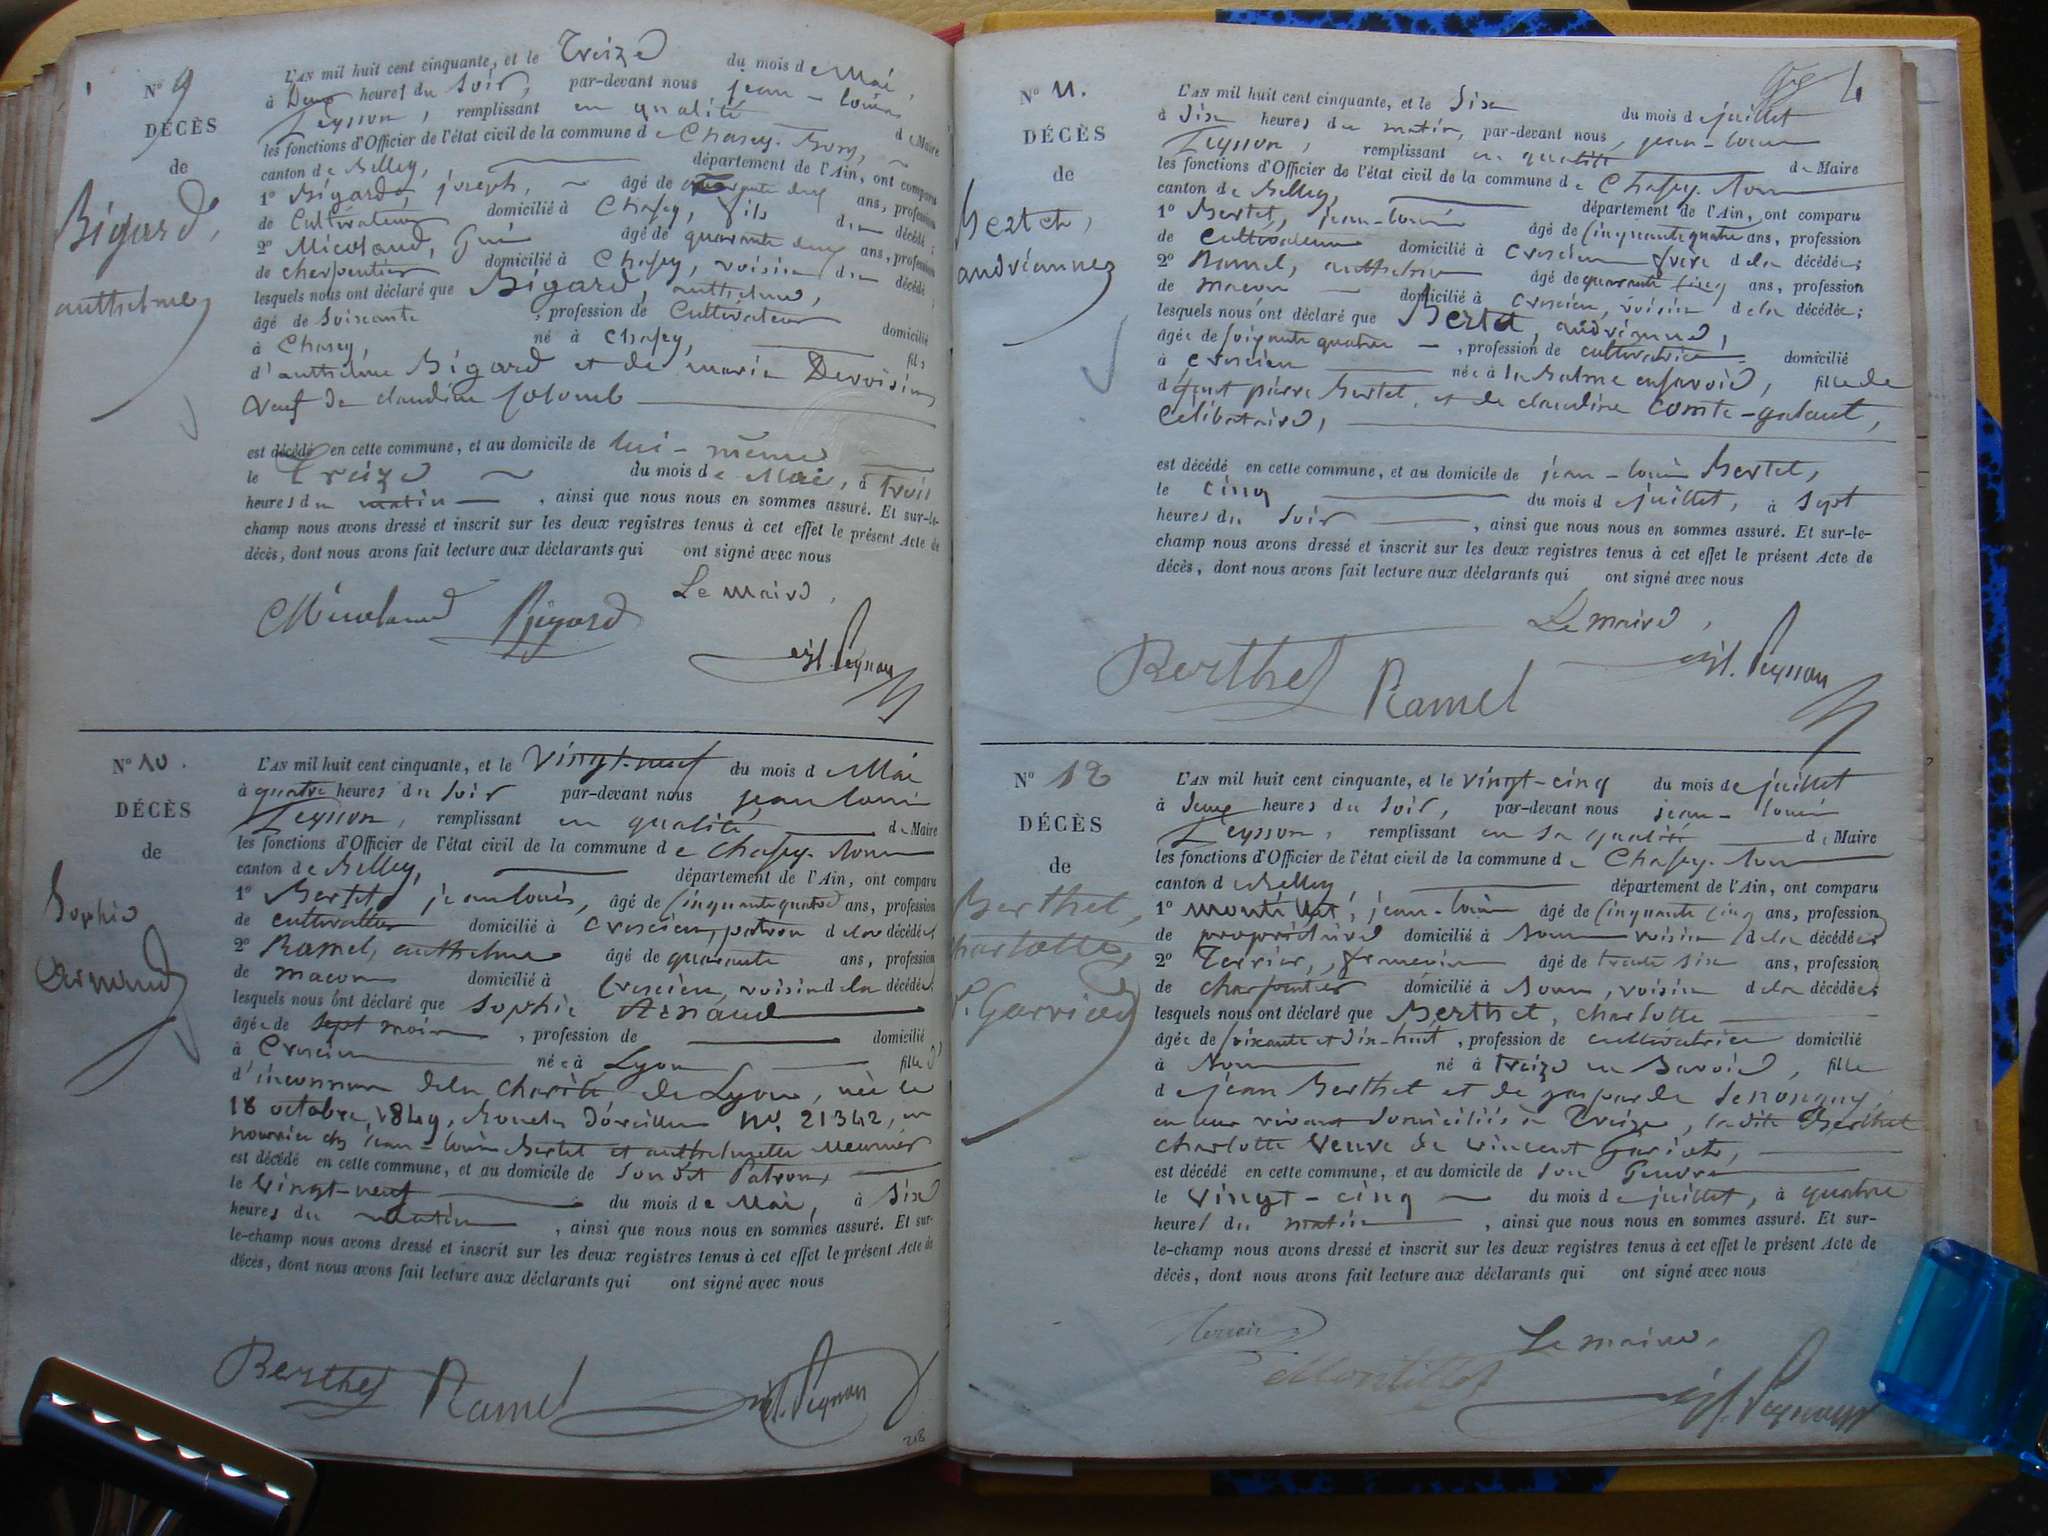 N° 9
DÉCÈS
de
Bigard,
anthelme
L'AN mil huit cent cinquante, et le Treize du mois de Mai,
à Deux heures du Soir, par-devant nous jean-louis
Peysson, remplissant en qualité de Maire
les fonctions d'Officier de l'état civil de la commune de Chasey-Bons,
canton de Belley, département de l'Ain, ont comparu
1° Bigard, joseph, âgé de quarante deux ans, profession
de Cultivateur domicilié à Chasey, fils du décédé;
2° Micoland, âgé de quarante deux ans, profession
de charpentier domicilié à Chasey, voisin du décédé,
lesquels nous ont déclaré que Bigard, anthelme,
âgé de soixante, profession de Cultivateur domicilié
à Chasey, né à Chasey, fils
d'anthelme Bigard et de marie Dervoisin
veuf de claudine Colomb
est décédé en cette commune, et au domicile de lui-même
le Treize du mois de Mai, à trois
heures du matin, ainsi que nous nous en sommes assuré. Et sur-le-
champ nous avons dressé et inscrit sur les deux registres tenus à cet effet le présent Acte de
décès, dont nous avons fait lecture aux déclarants qui ont signé avec nous
Le maire,
Micoland Bigard
Peysson
N° 10.
DÉCÈS
de
Sophie
Arnaud
L'AN mil huit cent cinquante, et le vingt-neuf du mois de Mai
à quatre heures du soir par-devant nous jean louis
Peysson, remplissant en qualité de Maire
les fonctions d'Officier de l'état civil de la commune de Chasey-Bons
canton de Belley, département de l'Ain, ont comparu
1° Bertet jean louis, âgé de cinquante quatre ans, profession
de cultivateur domicilié à Croscieu, patron de la décédée,
2° Ramel, anthelme âgé de quarante ans, profession
de macon domicilié à Croscieu, voisin de la décédée,
lesquels nous ont déclaré que Sophie Arnaud
âgée de sept mois, profession de domicilié
à Croscieu née à Lyon fille d
d'inconnus de la charité de Lyon, née le
18 octobre 1849, Boucles d'oreilles N°. 21342, en
nourrice chez jean-louis Bertet et anthelmette Meunier
est décédé en cette commune, et au domicile de son dit Patron,
le vingt-neuf du mois de Mai, à six
heures du matin, ainsi que nous nous en sommes assuré. Et sur-
le-champ nous avons dressé et inscrit sur les deux registres tenus à cet effet le présent Acte de
décès, dont nous avons fait lecture aux déclarants qui ont signé avec nous
Berthet Ramel Peysson
218
N° 11.
DÉCÈS
de
Bertet,
andrianne
L'AN mil huit cent cinquante, et le six du mois de juillet
à six heures du matin, par-devant nous, jean-louis
Peysson, remplissant en qualité de Maire
les fonctions d'Officier de l'état civil de la commune de Chasey-Bons
canton de Belley, département de l'Ain, ont comparu
1° Bertet, jean-louis âgé de cinquante quatre ans, profession
de cultivateur domicilié à Croscieu frère de la décédée;
2° Ramel, anthelme âgé de quarante cinq ans, profession
de macon domicilié à Croscieu, voisin de la décédée;
lesquels nous ont déclaré que Bertet, andrianne,
âgée de soixante quatre, profession de cultivatrice domicilié
à Croscieu née à la Balme en savoie, fille de
défunt pierre Bertet, et de claudine comte-galant,
célibataire,
est décédé en cette commune, et au domicile de jean-louis Bertet,
le cinq du mois de juillet, à sept
heures du soir, ainsi que nous nous en sommes assuré. Et sur-le-
champ nous avons dressé et inscrit sur les deux registres tenus à cet effet le présent Acte de
décès, dont nous avons fait lecture aux déclarants qui ont signé avec nous
Le maire,
Berthet Ramel Peysson
N° 12
DÉCÈS
de
Berthet,
charlotte,
L'AN mil huit cent cinquante, et le vingt-cinq du mois de juillet
à deux heures du soir, par-devant nous jean-louis
Peysson, remplissant en sa qualité de Maire
les fonctions d'Officier de l'état civil de la commune de Chasey-Bons
canton de Belley, département de l'Ain, ont comparu
1° Montillet, jean-louis âgé de cinquante cinq ans, profession
de propriétaire domicilié à Bons voisin de la décédée;
2° Terrier, françois âgé de trente six ans, profession
de charpentier domicilié à Bons, voisin de la décédée;
lesquels nous ont déclaré que Berthet, charlotte
âgée de soixante et dix-huit, profession de cultivatrice domicilié
à Bons né à Treize en Savoie, fille
de jean Berthet et de gasparde
en leur vivant domiciliés à Treize, ladite Berthet
charlotte veuve de vincent
est décédé en cette commune, et au domicile de son Gendre
le vingt-cinq du mois de juillet, à quatre
heures du matin, ainsi que nous nous en sommes assuré. Et sur-
le-champ nous avons dressé et inscrit sur les deux registres tenus à cet effet le présent Acte de
décès, dont nous avons fait lecture aux déclarants qui ont signé avec nous
Le maire,
Terrier
Montillet
Peysson